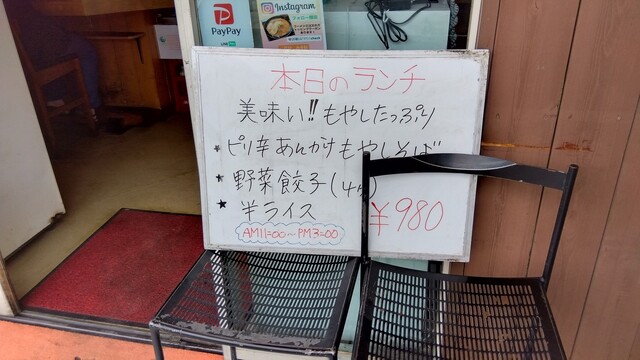 PayPay
Instagram
本日のランチ
美味い!! もやしたっぷり
★ピリ辛あんかけもやしそば
★野菜餃子(4
★半ライス
¥980
AM11:00〜PM3:00